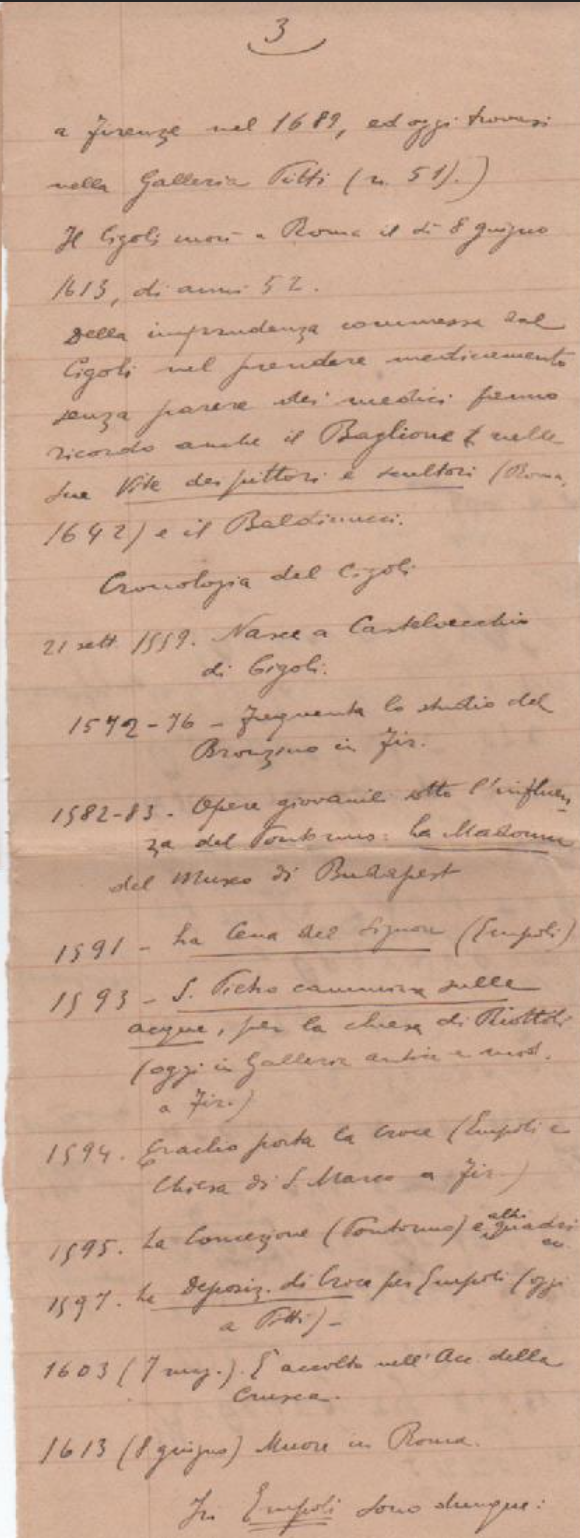 3
a Firenze nel 1689, ed oggi trovasi
nella Galleria Pitti (n. 51).)
Il Cigoli morì a Roma il dì 8 giugno
1613, di anni 52.
Della imprudenza commessa dal
Cigoli nel prendere medicamento
senza parere dei medici fanno
ricordo anche il Baglione nelle
sue Vite dei pittori e scultori (Roma,
1642) e il Baldinucci.
Cronologia del Cigoli
21 sett. 1559. Nasce a Castelvecchio
di Cigoli.
1572-76 - Frequenta lo studio del
Bronzino in Fir.
1582-83 - Opere giovanili sotto l'influen-
za del Pontormo: La Madonna
del Museo di Budapest
1591 - La Cena del Signore (Empoli)
1593 - S. Pietro cammina sulle
acque, per la chiesa di
(oggi in Galleria antica e mod.
a Fir.)
1594. Eraclio porta la Croce (Empoli e
Chiesa di S. Marco a Fir.)
1595. La Concezione (Pontormo) e altri quadri
ecc.
1597. La Deposiz. di Croce per Empoli (oggi
a Pitti) -
1603 (7 mag.). È accolto nell'Acc. della
Crusca.
1613 (8 giugno) Muore in Roma.
In Empoli sono dunque: